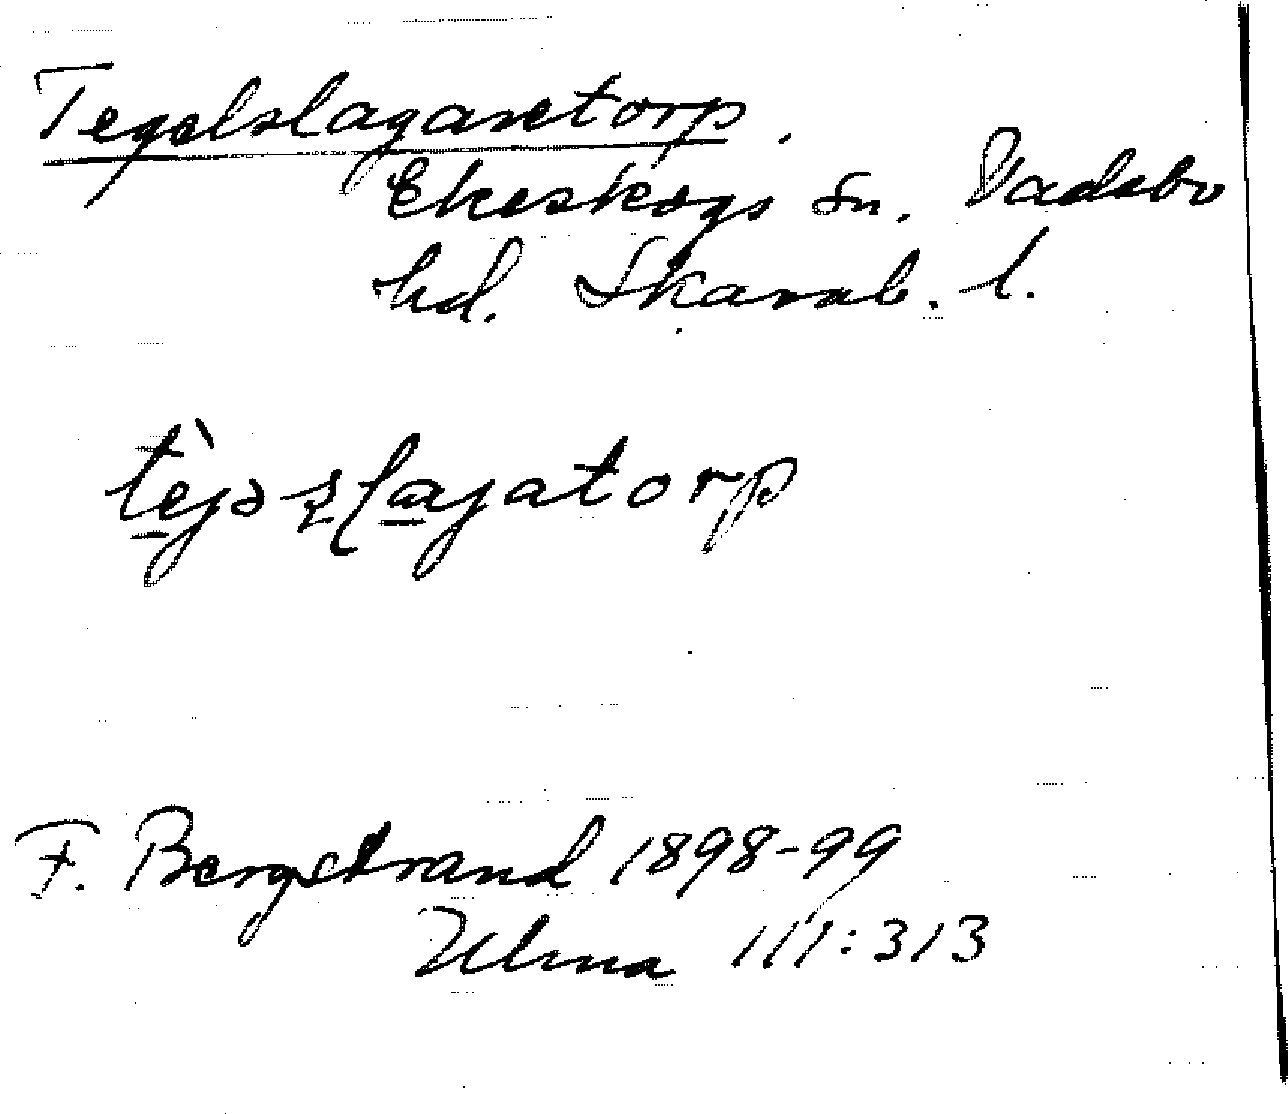 Tegelslagaretorp.
Ekeskogs sn. Vadsbo
hd. Skarab. l.
F. Bergstrand 1898-99
Ulma 111:313